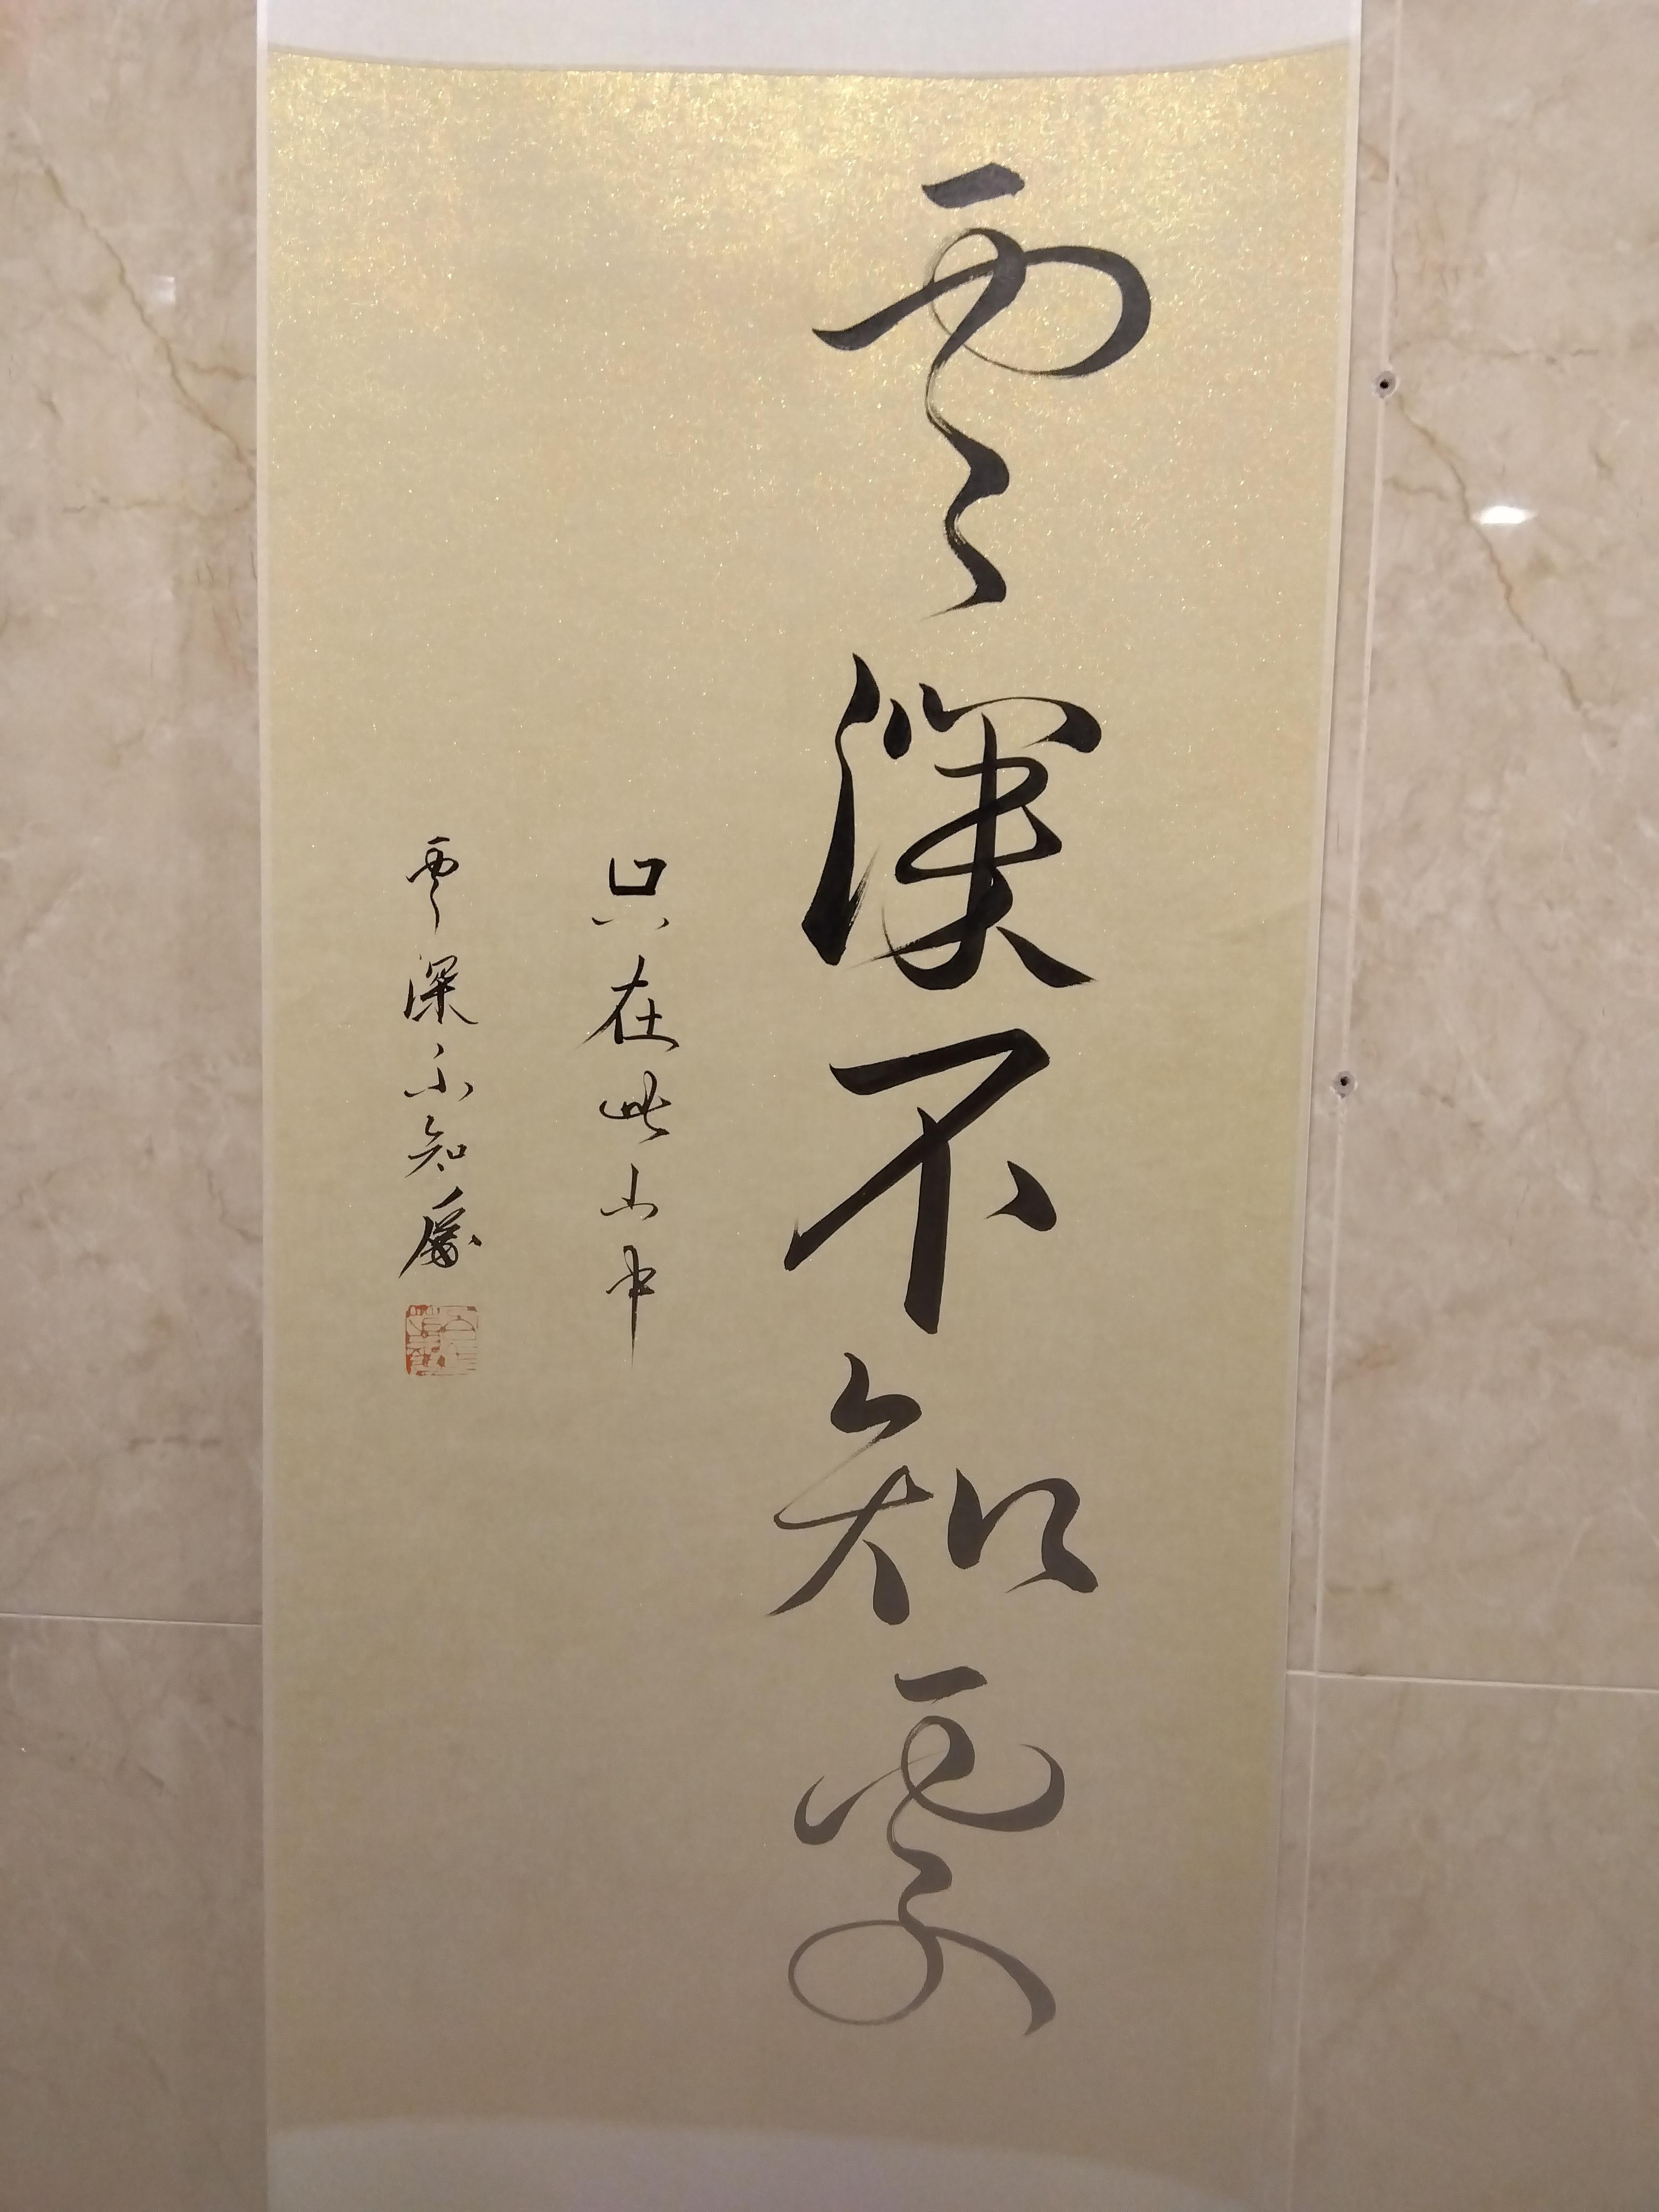 雲深不知處
只在此山中
雲深不知處